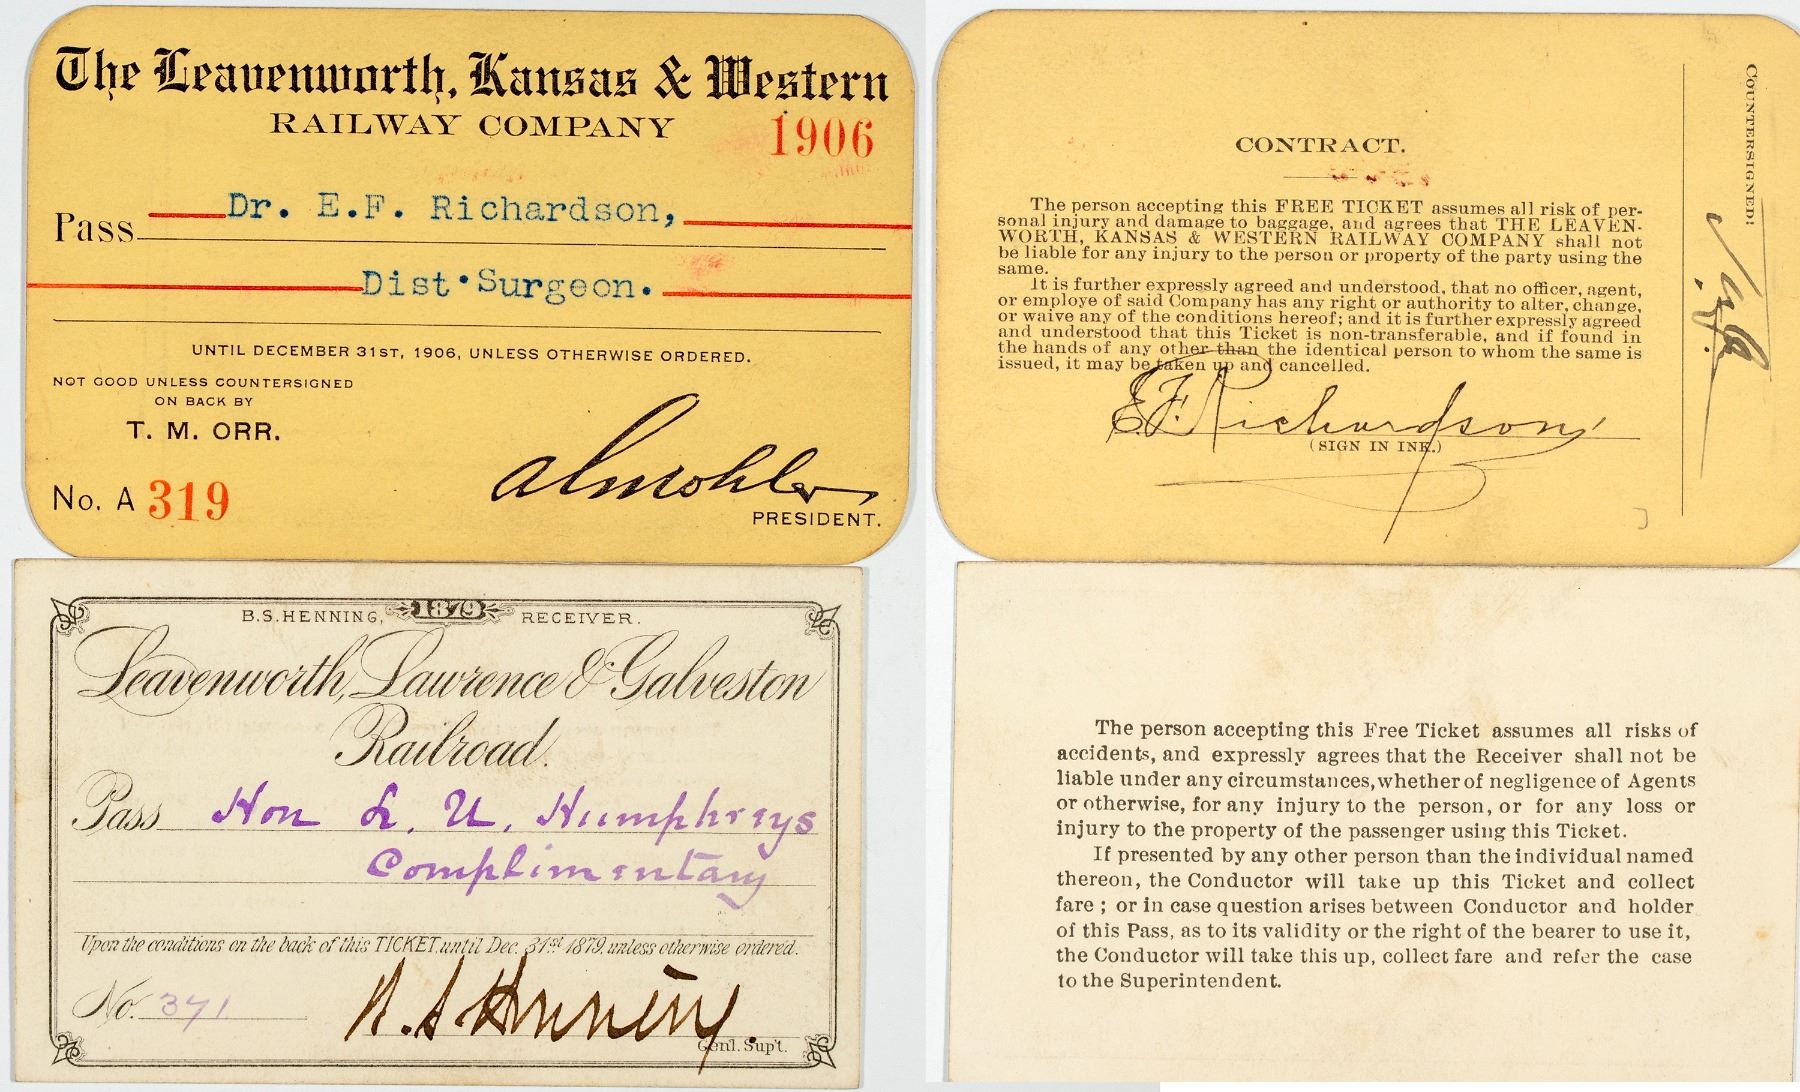 The Leavenworth, Kansas & Western
RAILWAY COMPANY
1906
Pass Dr. E.F. Richardson,
Dist. Surgeon.
UNTIL DECEMBER 31ST, 1906, UNLESS OTHERWISE ORDERED.
NOT GOOD UNLESS COUNTERSIGNED
ON BACK BY
T. M. ORR.
No. A 319
ALMohler
PRESIDENT.
CONTRACT.
The person accepting this FREE TICKET assumes all risk of per-
sonal injury and damage to baggage, and agrees that THE LEAVEN-
WORTH, KANSAS & WESTERN RAILWAY COMPANY shall not
be liable for any injury to the person or property of the party using the
same.
It is further expressly agreed and understood, that no officer, agent,
or employe of said Company has any right or authority to alter, change,
or waive any of the conditions hereof; and it is further expressly agreed
and understood that this Ticket is non-transferable, and if found in
the hands of any other than the identical person to whom the same is
issued, it may be taken up and cancelled.
E.F. Richardson
(SIGN IN INK.)
COUNTERSIGNED:
B.S. HENNING, 1879 RECEIVER.
Leavenworth, Lawrence & Galveston
Railroad.
Pass Hon L. U. Humphreys
Complimentary
Upon the conditions on the back of this TICKET, until Dec. 31st 1879, unless otherwise ordered.
No. 371
B. S. Henning
Gen'l. Sup't.
The person accepting this Free Ticket assumes all risks of
accidents, and expressly agrees that the Receiver shall not be
liable under any circumstances, whether of negligence of Agents
or otherwise, for any injury to the person, or for any loss or
injury to the property of the passenger using this Ticket.
If presented by any other person than the individual named
thereon, the Conductor will take up this Ticket and collect
fare ; or in case question arises between Conductor and holder
of this Pass, as to its validity or the right of the bearer to use it,
the Conductor will take this up, collect fare and refer the case
to the Superintendent.